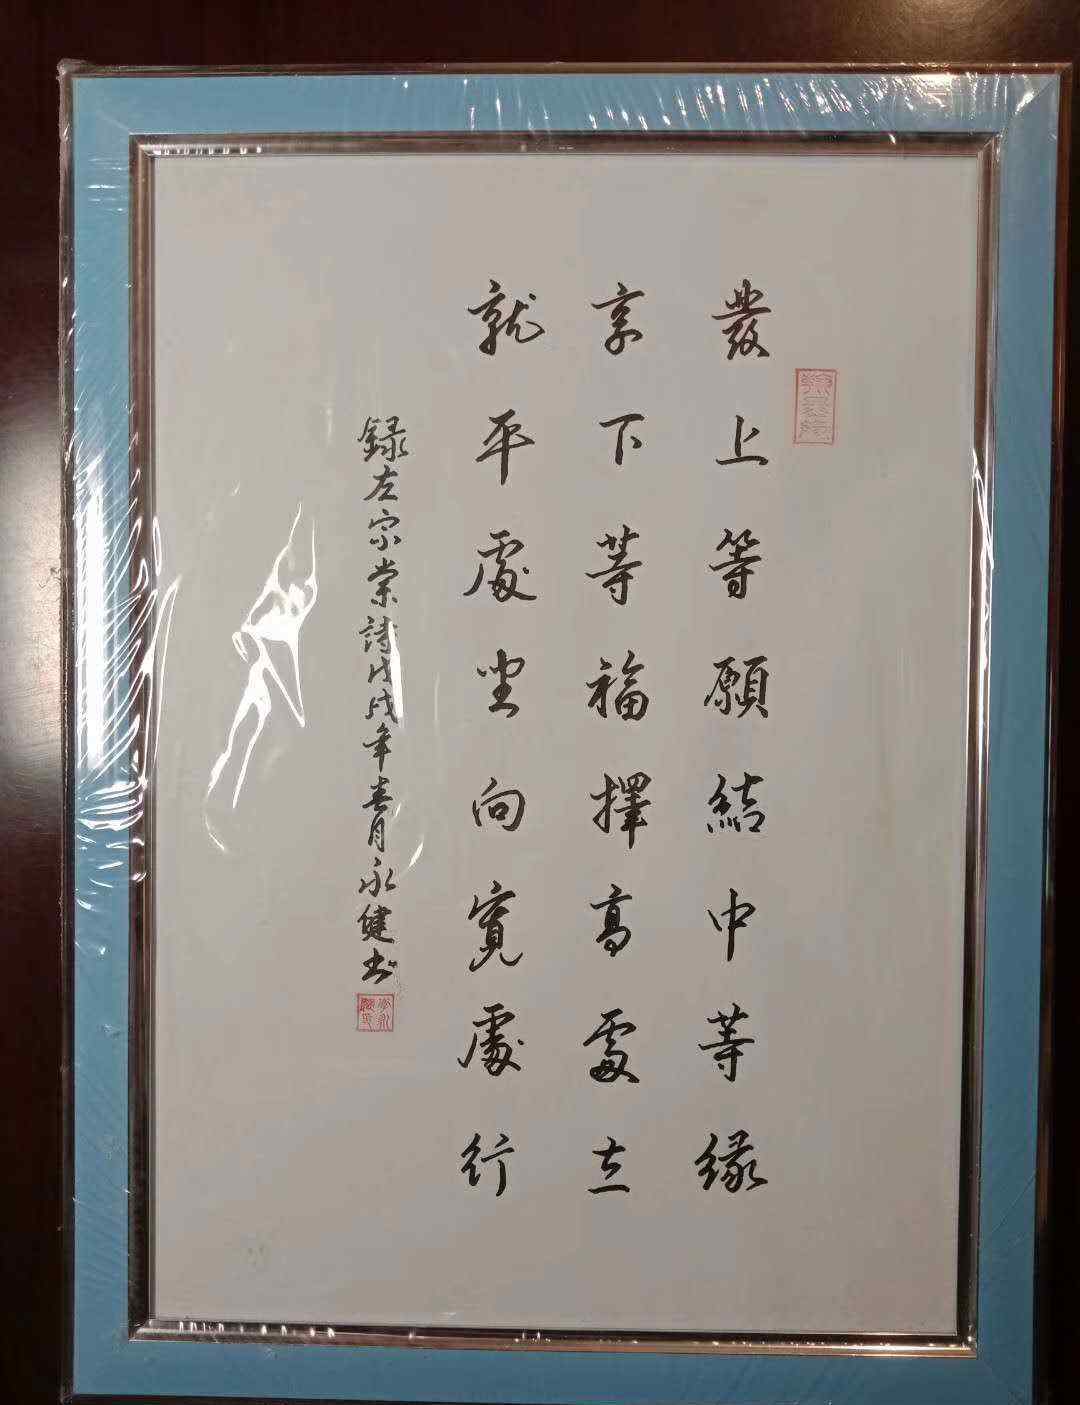 發上等願結中等緣
享下等福擇高處立
就平處坐向寬處行
録左宗棠詩戊戌年春月永健书